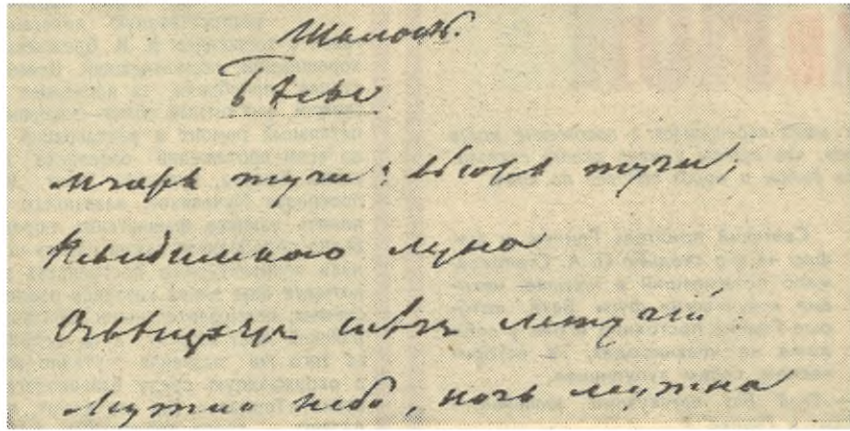 Шалость.
Бѣсы
Мчатся тучи, вьются тучи;
Невидимкою луна
Освѣщаетъ снѣгъ летучій
Мутно небо, ночь мутна